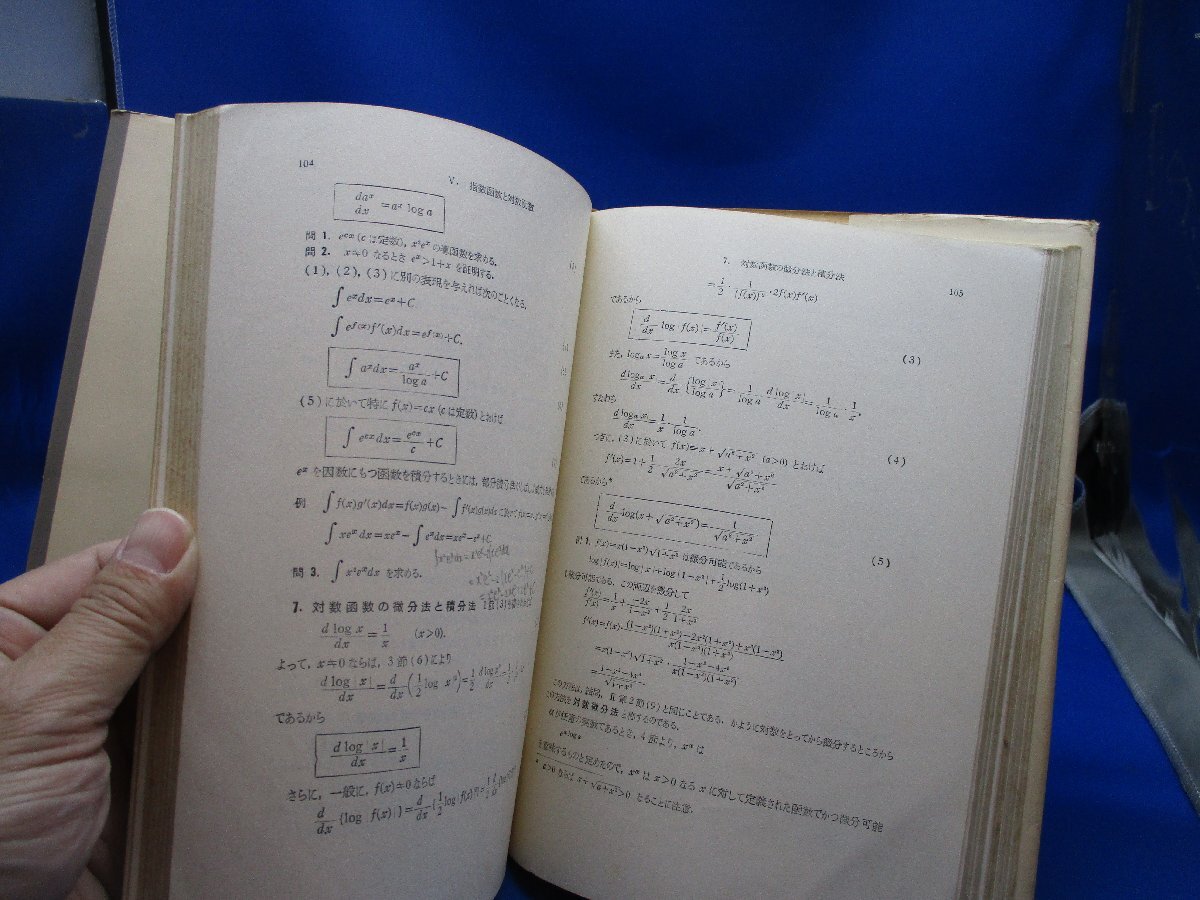 104
V. 指数函数と対数函数
da^x/dx = a^x log a
問 1. e^{cx} (c は定数), x²e^x の導函数を求める.
問 2. x≠0 なるとき e^x>1+x を証明する.
(1), (2), (3) に別の表現を与えれば次のごとくなる.
∫e^x dx=e^x+C.
∫e^{f(x)}f'(x)dx=e^{f(x)}+C.
∫a^x dx= a^x/log a +C
(5) に於いて特に f(x)=cx (c は定数) とおけば
∫e^{cx}dx= e^{cx}/c +C
e^x を因数にもつ函数を積分するときには, 部分積分法
例 ∫f(x)g'(x)dx=f(x)g(x)-∫f'(x)g(x)dx に於いて
∫xe^x dx=xe^x-∫e^x dx=xe^x-e^x+C
問 3. ∫x²e^x dx を求める.
7. 対数函数の微分法と積分法
d log x/dx = 1/x (x>0).
よって, x≠0 ならば, 3 節 (6) により
d log|x|/dx = d/dx (1/2 log x²) = 1/2 d log x²/dx
であるから
d log|x|/dx = 1/x
さらに, 一般に, f(x)≠0 ならば
d/dx {log|f(x)|} = d/dx {1/2 log
7. 対数函数の微分法と積分法
105
= 1/2 · 1/{f(x)}² ·2f(x)f'(x)
であるから
d/dx log|f(x)| = f'(x)/f(x)
(3)
また, log_a x = log x/log a であるから
d log_a x/dx = d/dx {log x/log a} = 1/log a · d log x/dx = 1/log a · 1/x,
すなわち
d log_a x/dx = 1/x · 1/log a.
(4)
つぎに, (3) に於いて f(x)=x+√(a²+x²) (a>0) とおけば
f'(x)=1+ 1/2 · 2x/√(a²+x²) = (x+√(a²+x²))/√(a²+x²)
であるから*
d/dx log(x+√(a²+x²)) = 1/√(a²+x²)
(5)
例 1. f(x)=x(1-x²)√(1+x²) は微分可能であるから
log|f(x)|=log|x|+log|1-x²|+ 1/2 log(1+x²)
も微分可能である. この両辺を微分して
f'(x)/f(x) = 1/x + -2x/(1-x²) + 1/2 · 2x/(1+x²)
f'(x)=f(x)· ((1-x²)(1+x²)-2x²(1+x²)+x²(1-x²))/(x(1-x²)(1+x²))
=x(1-x²)√(1+x²) · (1-x²-4x⁴)/(x(1-x²)(1+x²))
= (1-x²-4x⁴)/√(1+x²).
この方法は, 第2節 (9) と同じことである. かように対数をとってから微分するところから
この方法を対数微分法と称するのである.
α が任意の実数であるとき, 4 節より, x^α は
e^{α log x}
を意味するものと定めたので, x^α は x>0 なる x に対して定義された函数でかつ微分可能
* a>0 ならば x+√(a+x²)>0 なることに注意.